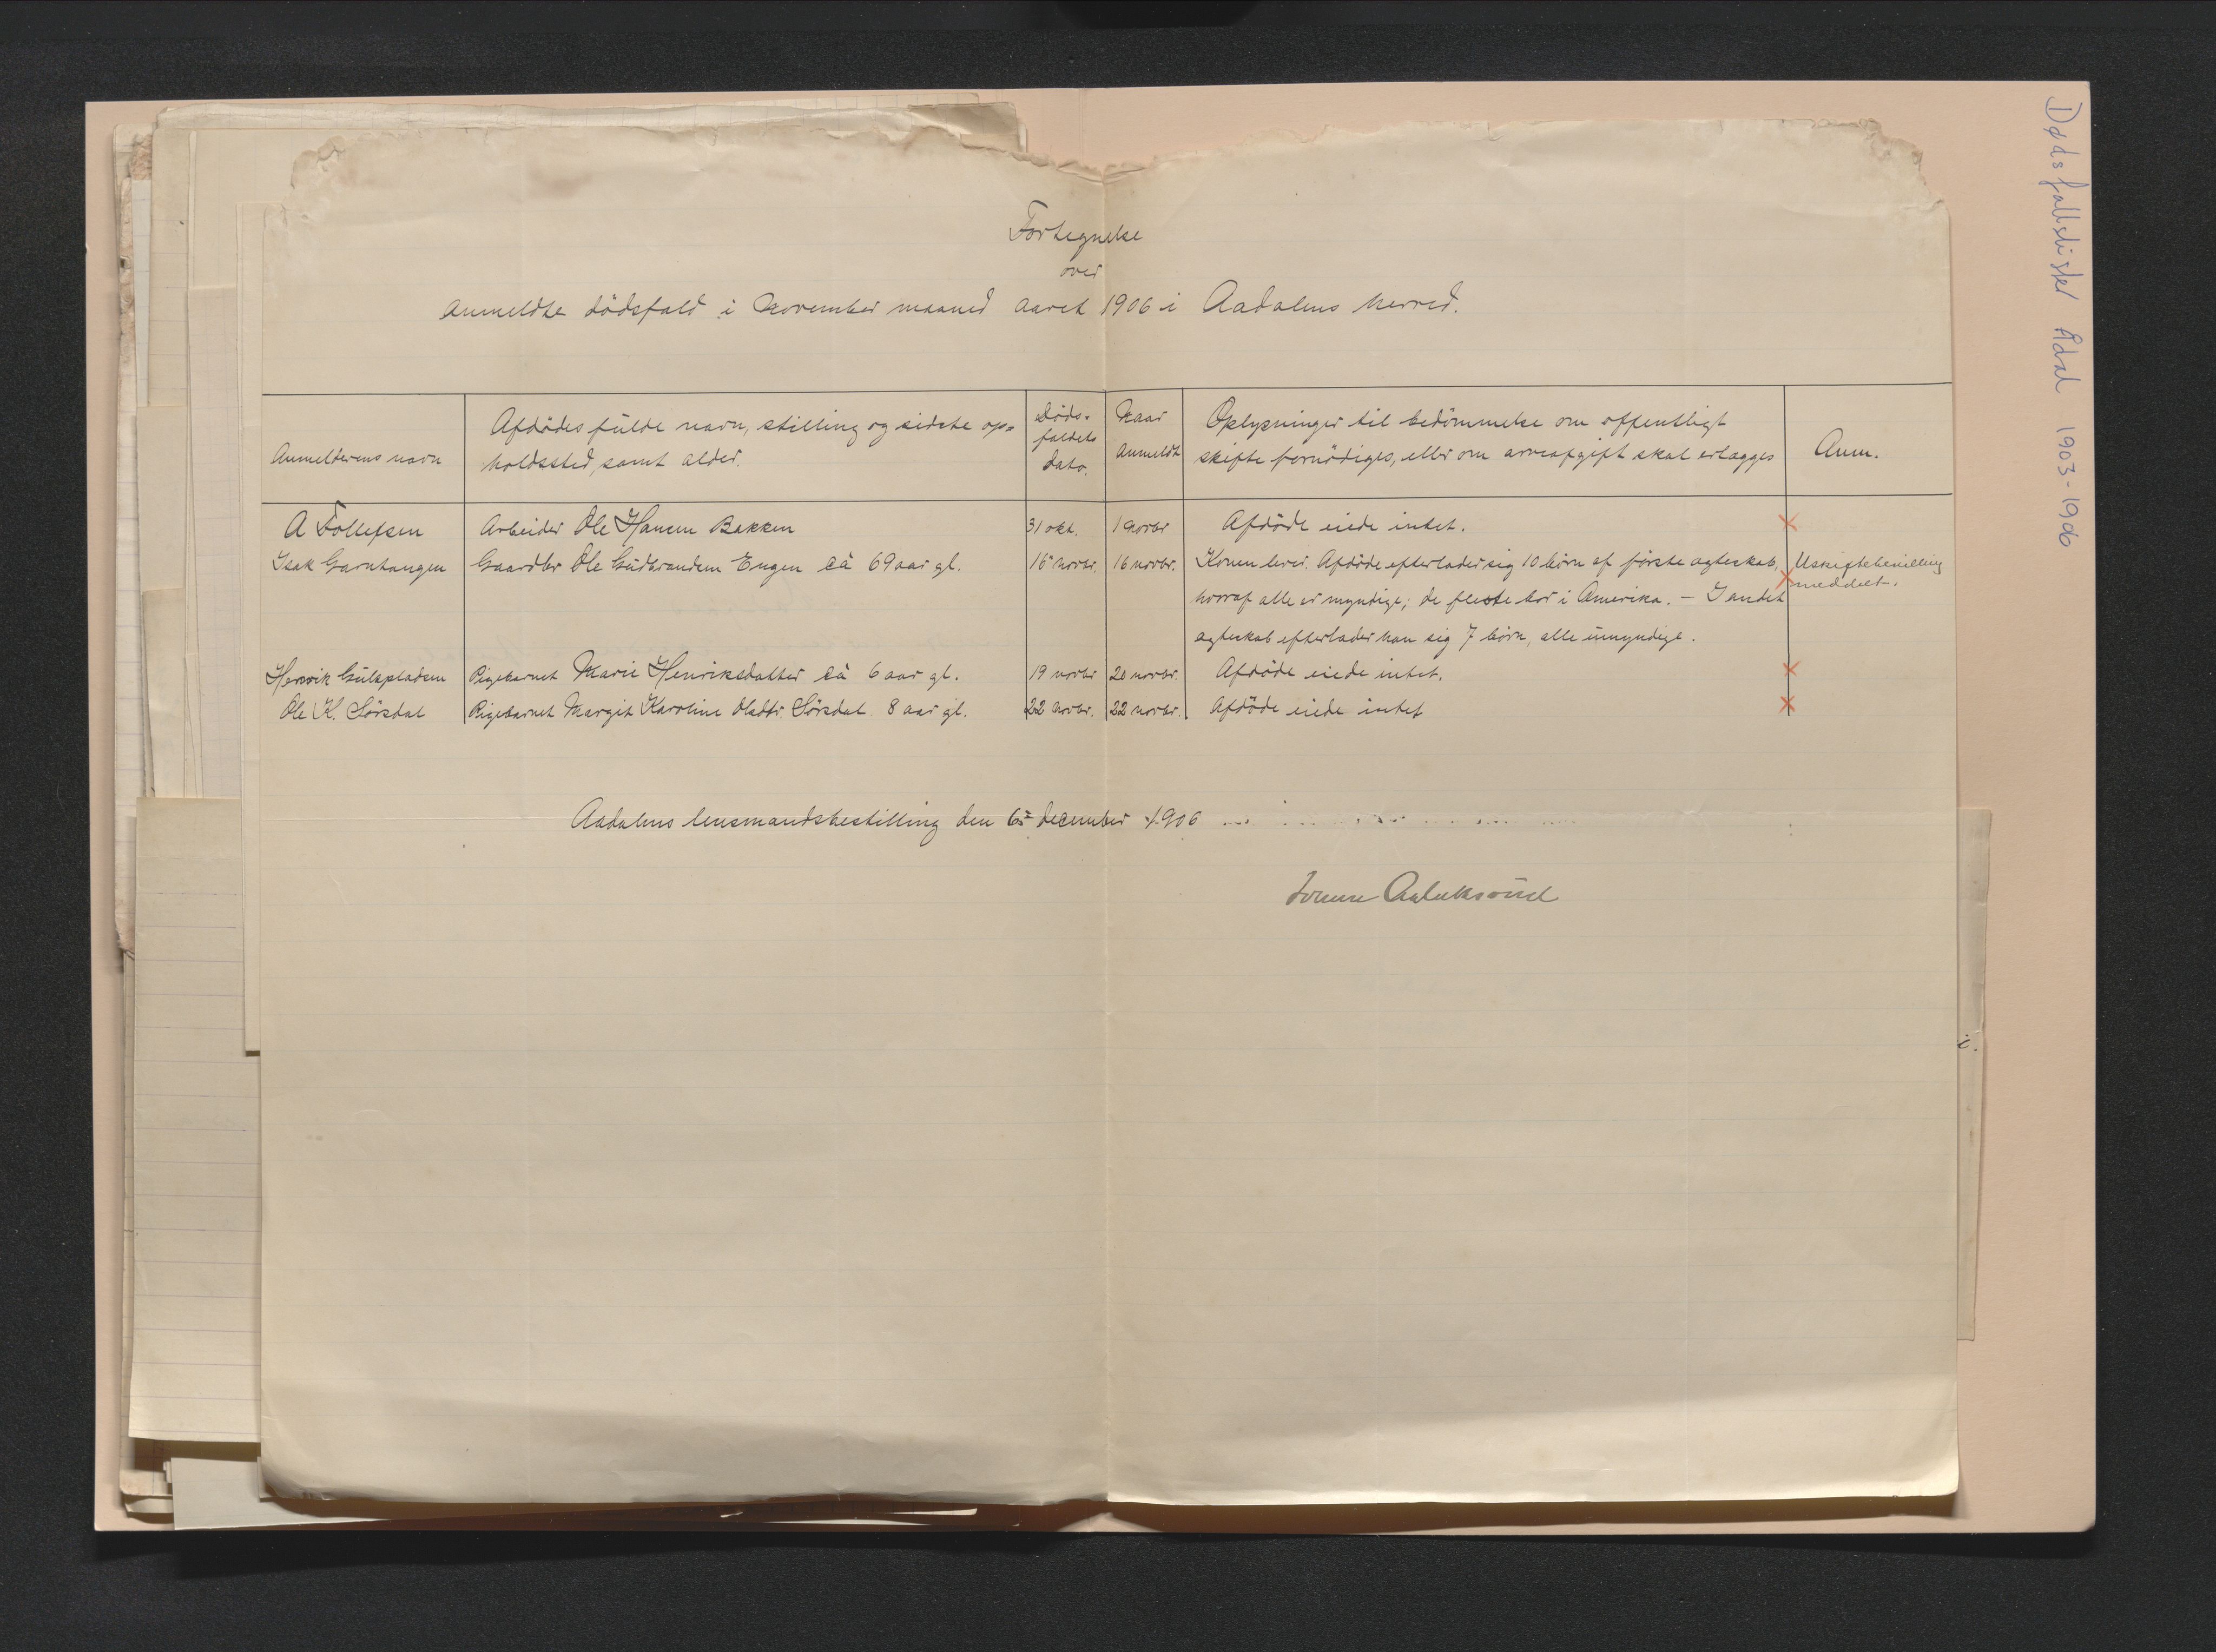 Fortegnelse
over
anmeldte dödsfald i november maaned aaret 1906 i Aadalens herred.
Anmelderens navn
Afdödes fulde navn, stilling og sidste op=
holdssted, samt alder.
Döds=
faldets
dato.
Naar
anmeldt
Oplysninger til bedömmelse om offentligt
skifte fornödiges, eller om arveafgift skal erlægges
Anm.
A Tollefsen Arbeider Ole Hansen Bakken 31 okt. 1 novbr Afdöde eiede intet. ×
Isak Garntangen Gaardbr Ole Gudbrandsen Engen cà 69 aar gl. 15 novbr. 16 novbr. Konen lever. Afdöde efterlader sig 10 börn af förste ægteskab, Uskiftebevilling
hvoraf alle er myndige; de fleste bor i Amerika. — I andet × meddelt.
ægteskab efterlader han sig 7 börn, alle umyndige.
Henrik Gulspladsen Pigebarnet Marie Henriksdatter cà 6 aar gl. 19 novbr 20 novbr. Afdöde eiede intet. ×
Ole K. Sörsdal Pigebarnet Margit Karoline Olsdtr. Sörsdal 8 aar gl. 22 novbr. 22 novbr. Afdöde eiede intet ×
Aadalens lensmandsbestilling den 6te december 1906
Dødsfallslister Ådal 1903-1906
i.